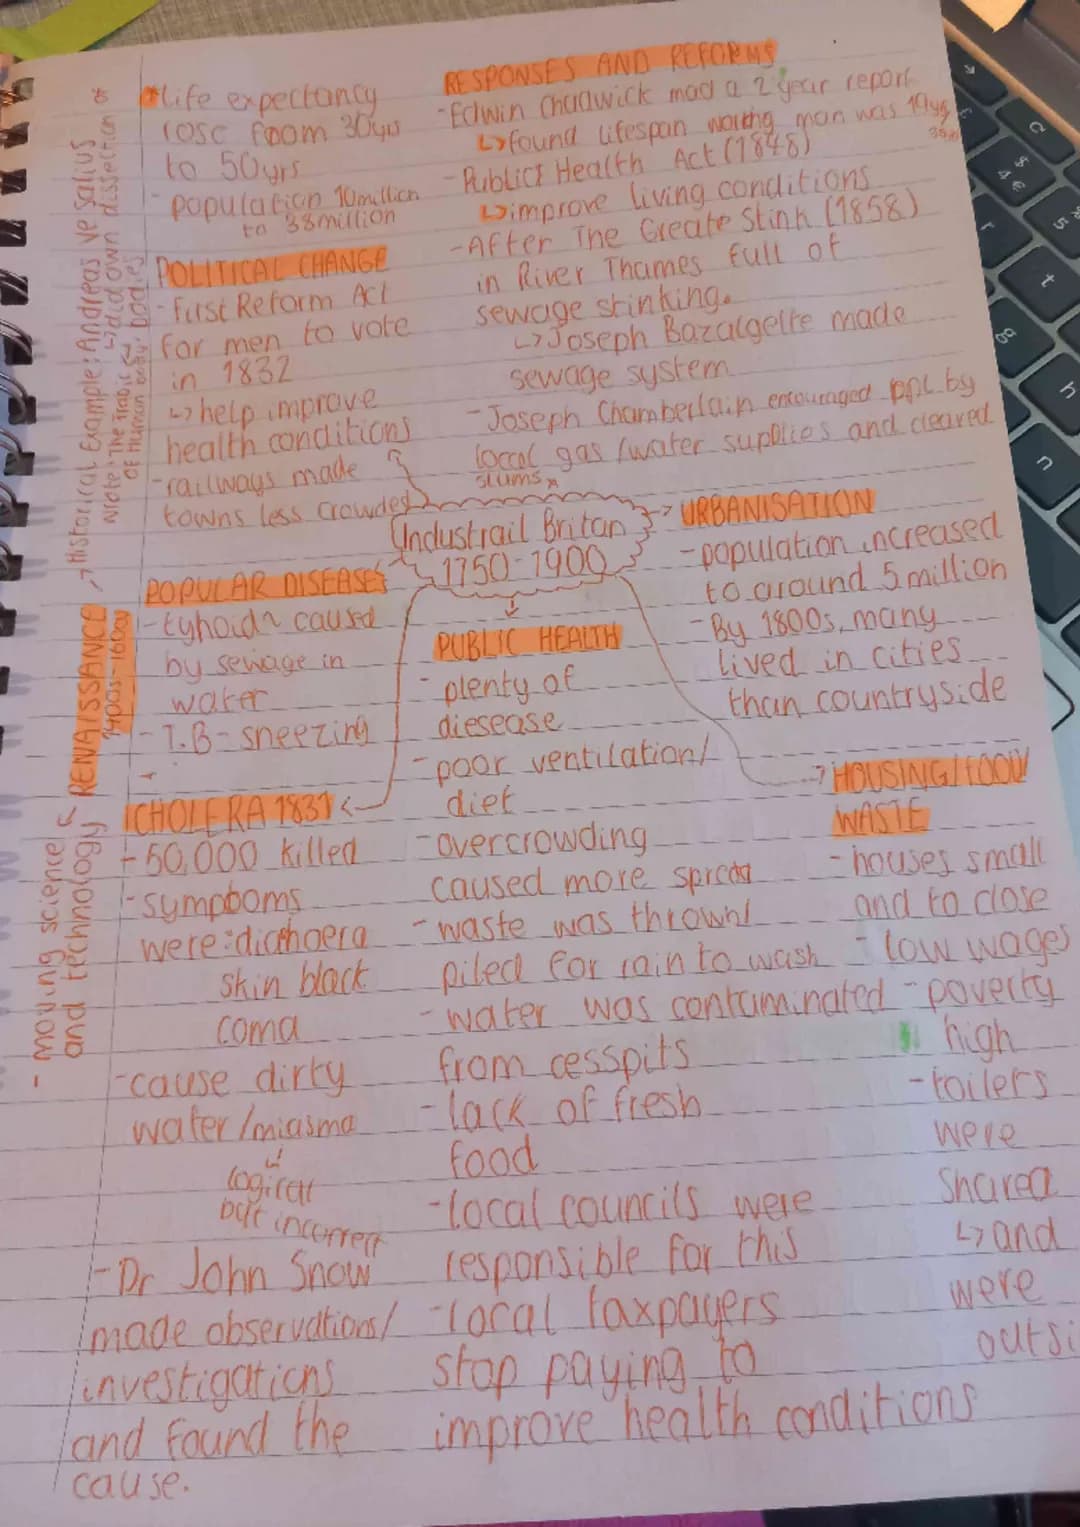 *life expectancy
rose from 30yrs
to 50yrs
- population 10million
to 38million
POLITICAL CHANGE
- First Reform Act
for men to vote
in 1832
↳ help improve
health conditions
- railways made
towns less crowded
RESPONSES AND REFORMS
- Edwin Chadwick mad a 2 year report
↳ found lifespan working man was 19yrs
35
- Public Health Act (1848)
↳ improve living conditions
- After The Greate Stink (1858)
in River Thames full of
sewage stinking.
↳ Joseph Bazalgette made
sewage system
- Joseph Chamberlain encouraged ppl by
local gas/water supplies and cleared
slums
Industrail Britan
1750-1900
URBANISATION
- population increased
to around 5 million
- By 1800s, many
lived in cities
than countryside
POPULAR DISEASES
- tyhoid caused
by sewage in
water
- T.B - sneezing
-
CHOLERA 1831
- 50,000 killed
- sympboms
were: diarhoera
skin black
coma
- cause dirty
water/miasma
↳ logical
but incorrect
- Dr John Snow
made observations/
investigations
and found the
cause.
PUBLIC HEALTH
- plenty of
diesease
- poor ventilation/
diet
- overcrowding
caused more spread
- waste was thrown/
piled for rain to wash
- water was contaminated
from cesspits
- lack of fresh
food
- local councils were
responsible for this
- local taxpayers
stop paying to
improve health conditions
HOUSING/FOOD/
WASTE
- houses small
and to close
- low wages
- poverty
high
- toilers
were
shared
↳ and
were
outsi
RENAISSANCE
1400s-1600s
- moving science
and technology
→ Historical Example: Andreas vesalius *
↳ did own dissection
wrote: The Fabric
of Human body bodies